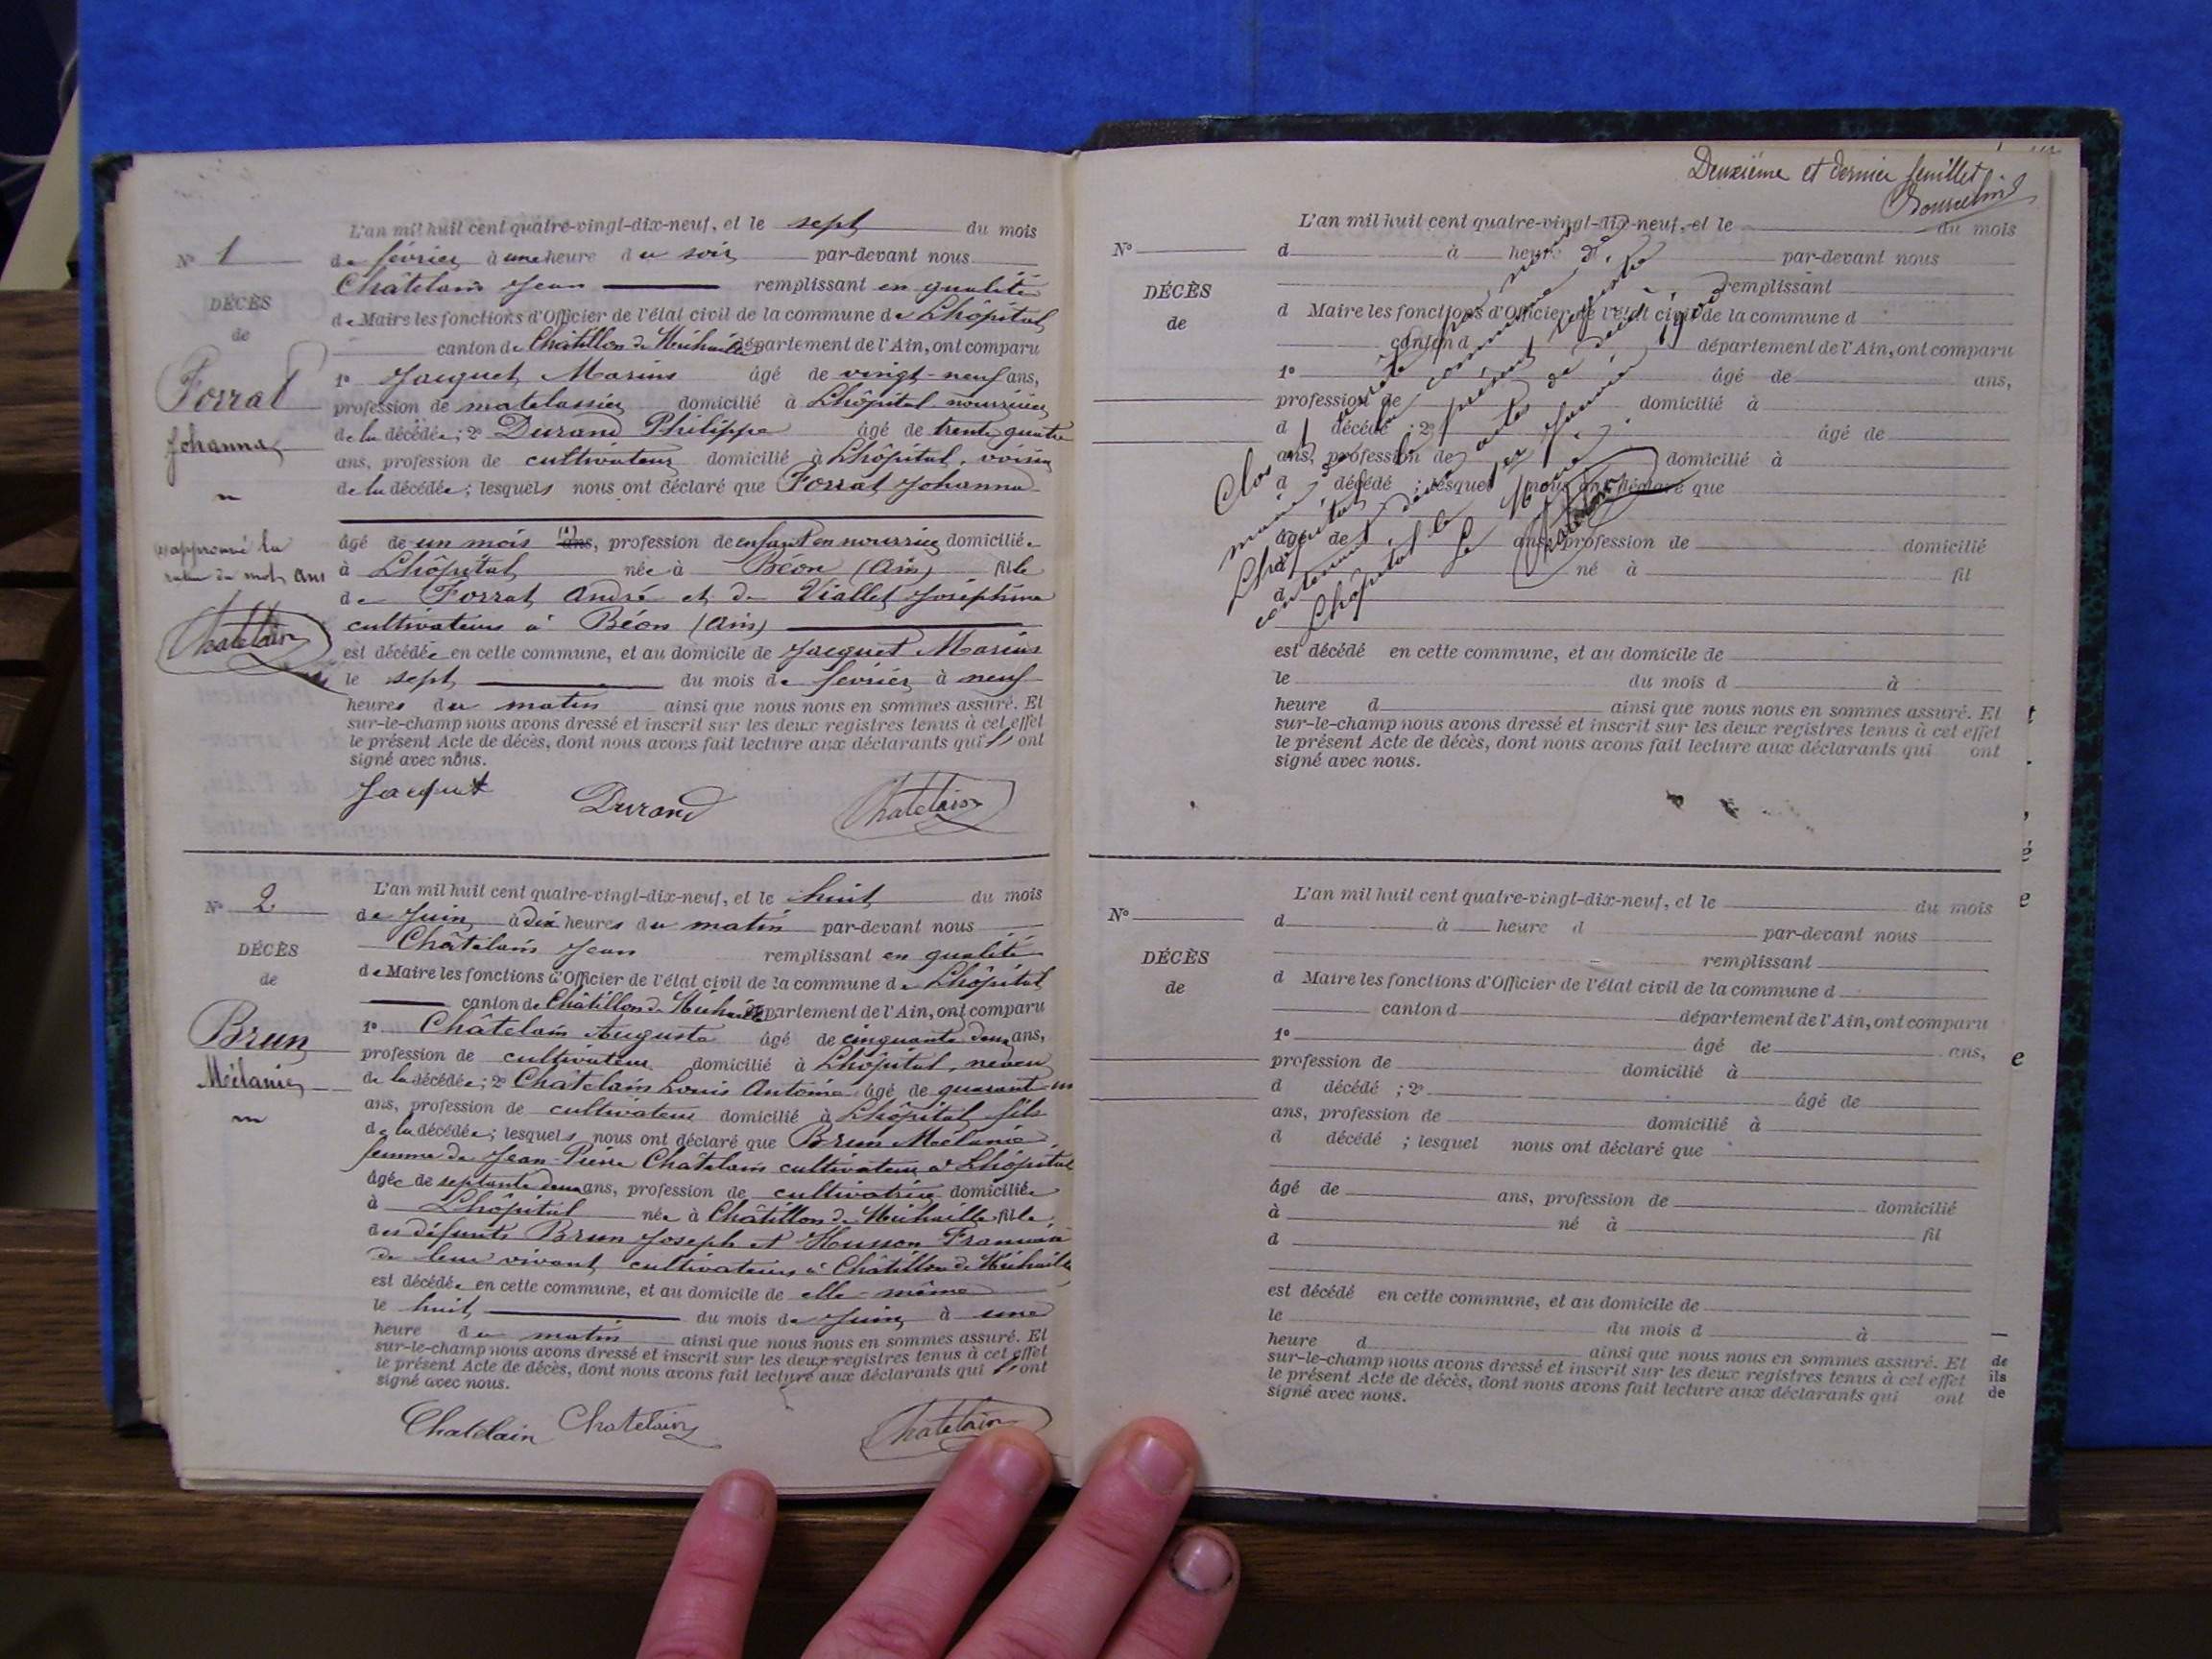 L'an mil huit cent quatre-vingt-dix-neuf, et le sept du mois
N° 1
de février à une heure du soir par-devant nous
Châtelain Jean remplissant en qualité
DÉCÈS
de Maire les fonctions d'Officier de l'état civil de la commune de Lhôpital
de
canton de Châtillon de Michaille département de l'Ain, ont comparu
Forrat
1° Jacquet Marius âgé de vingt-neuf ans,
profession de matelassier domicilié à Lhôpital nourricier
Johanna
de la décédée; 2° Durand Philippe âgé de trente quatre
ans, profession de cultivateur domicilié à Lhôpital, voisin
de la décédée; lesquels nous ont déclaré que Forrat Johanna
(1) approuvé la
rature du mot ans
Chatelain
âgé de un mois (1) ans, profession de enfant en nourrice domiciliée
à Lhôpital née à Béon (Ain) fille
de Forrat André et de Viallet Joséphine
cultivateurs à Béon (Ain)
est décédée en cette commune, et au domicile de Jacquet Marius
le sept du mois de février à neuf
heures du matin ainsi que nous nous en sommes assuré. Et
sur-le-champ nous avons dressé et inscrit sur les deux registres tenus à cet effet
le présent Acte de décès, dont nous avons fait lecture aux déclarants qui l's ont
signé avec nous.
Jacquet Durand Chatelain
L'an mil huit cent quatre-vingt-dix-neuf, et le huit du mois
N° 2
de Juin à dix heures du matin par-devant nous
Châtelain Jean remplissant en qualité
DÉCÈS
de Maire les fonctions d'Officier de l'état civil de la commune de Lhôpital
de
canton de Châtillon de Michaille département de l'Ain, ont comparu
Brun
1° Châtelain Auguste âgé de cinquante deux ans,
profession de cultivateur domicilié à Lhôpital, neveu
Mélanie
de la décédée; 2° Châtelain Louis Antoine âgé de quarant un
ans, profession de cultivateur domicilié à Lhôpital fils
de la décédée; lesquels nous ont déclaré que Brun Mélanie
femme de Jean-Pierre Chatelain cultivateur à Lhôpital
âgée de septante deux ans, profession de cultivatrice domiciliée
à Lhôpital née à Châtillon de Michaille fille
des défunts Brun Joseph et Husson
de leur vivant cultivateurs à Châtillon de Michaille
est décédée en cette commune, et au domicile de elle-même
le huit du mois de Juin à une
heure du matin ainsi que nous nous en sommes assuré. Et
sur-le-champ nous avons dressé et inscrit sur les deux registres tenus à cet effet
le présent Acte de décès, dont nous avons fait lecture aux déclarants qui l'ont
signé avec nous.
Chatelain Chatelain Chatelain
Deuxième et dernier feuillet
L'an mil huit cent quatre-vingt-dix-neuf, et le du mois
N°
d à heure d par-devant nous
remplissant
DÉCÈS
d Maire les fonctions d'Officier de l'état civil de la commune d
de
canton d département de l'Ain, ont comparu
1° âgé de ans,
profession de domicilié à
d décédé ; 2° âgé de
ans, profession de domicilié à
d décédé ; lesquel nous ont déclaré que
âgé de ans, profession de domicilié
à né à fil
d
Clos et arrêté par nous
maire de la commune de
Lhôpital le présent registre
contenant deux actes de décès.
Lhôpital le 1er janvier 1900
Le Maire
Chatelain
est décédé en cette commune, et au domicile de
le du mois d à
heure d ainsi que nous nous en sommes assuré. Et
sur-le-champ nous avons dressé et inscrit sur les deux registres tenus à cet effet
le présent Acte de décès, dont nous avons fait lecture aux déclarants qui ont
signé avec nous.
L'an mil huit cent quatre-vingt-dix-neuf, et le du mois
N°
d à heure d par-devant nous
remplissant
DÉCÈS
d Maire les fonctions d'Officier de l'état civil de la commune d
de
canton d département de l'Ain, ont comparu
1° âgé de ans,
profession de domicilié à
d décédé ; 2° âgé de
ans, profession de domicilié à
d décédé ; lesquel nous ont déclaré que
âgé de ans, profession de domicilié
à né à fil
d
est décédé en cette commune, et au domicile de
le du mois d à
heure d ainsi que nous nous en sommes assuré. Et
sur-le-champ nous avons dressé et inscrit sur les deux registres tenus à cet effet
le présent Acte de décès, dont nous avons fait lecture aux déclarants qui ont
signé avec nous.
de
ils
de